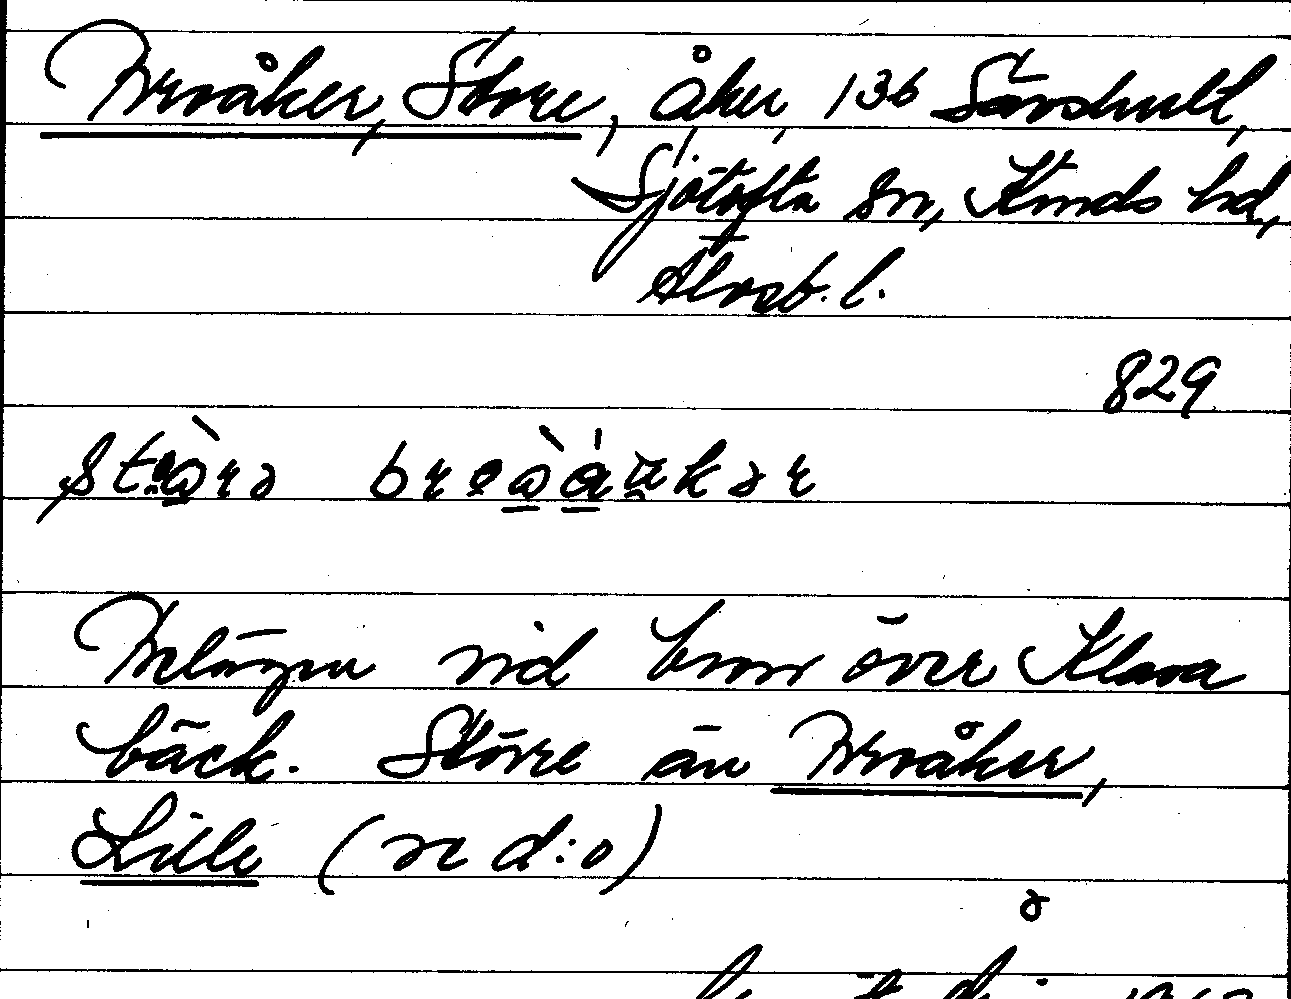 Broåker, Store, åker, 136 Sävshult,
Sjötofta sn, Kinds hd,
Älvsb. l.
829
Belägen vid bron över Klava
bäck. Större än Broåker,
Lille (se d:o)